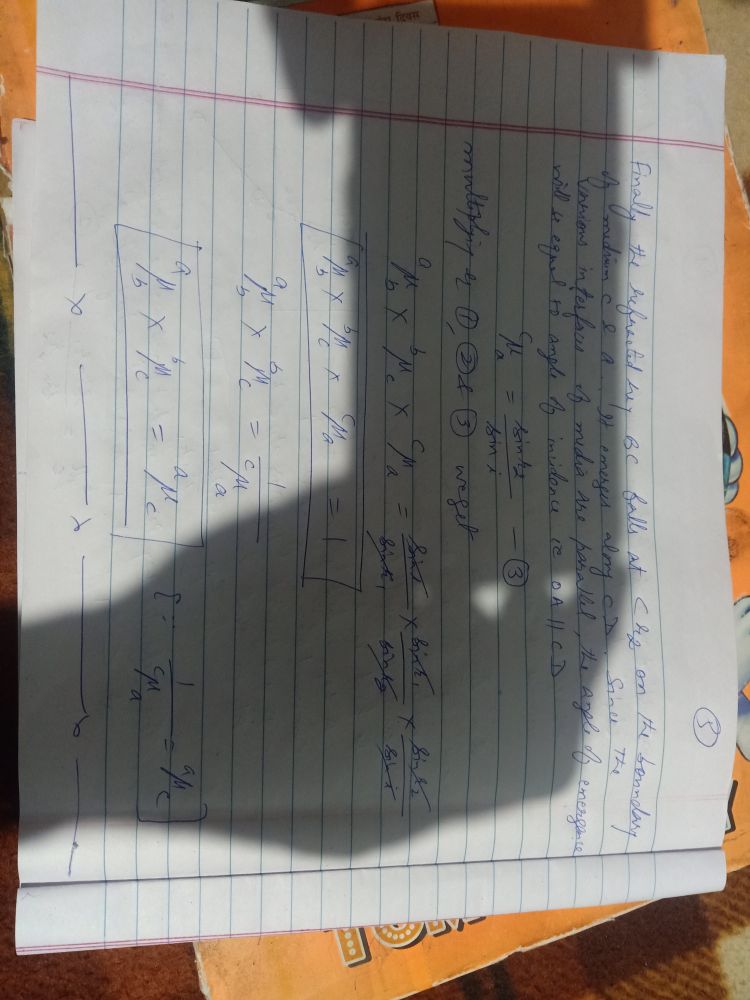 (5)
Finally the refracted ray BC falls at C & r2 on the boundary
of medium c & a. It emerges along CD. Since the
various interfaces of media are parallel, the angle of emergence
will be equal to angle of incidence ie OA || CD
ᶜμₐ = sin r₂ / sin i — ③
multiplying eq ①, ② & ③ we get
ᵃμ_b × ᵇμ_c × ᶜμₐ = sin i / sin r₁ × sin r₁ / sin r₂ × sin r₂ / sin i
ᵃμ_b × ᵇμ_c × ᶜμₐ = 1
ᵃμ_b × ᵇμ_c = 1 / ᶜμₐ
ᵃμ_b × ᵇμ_c = ᵃμ_c [∵ 1 / ᶜμₐ = ᵃμ_c]
— x — x — x — x —
दिवस